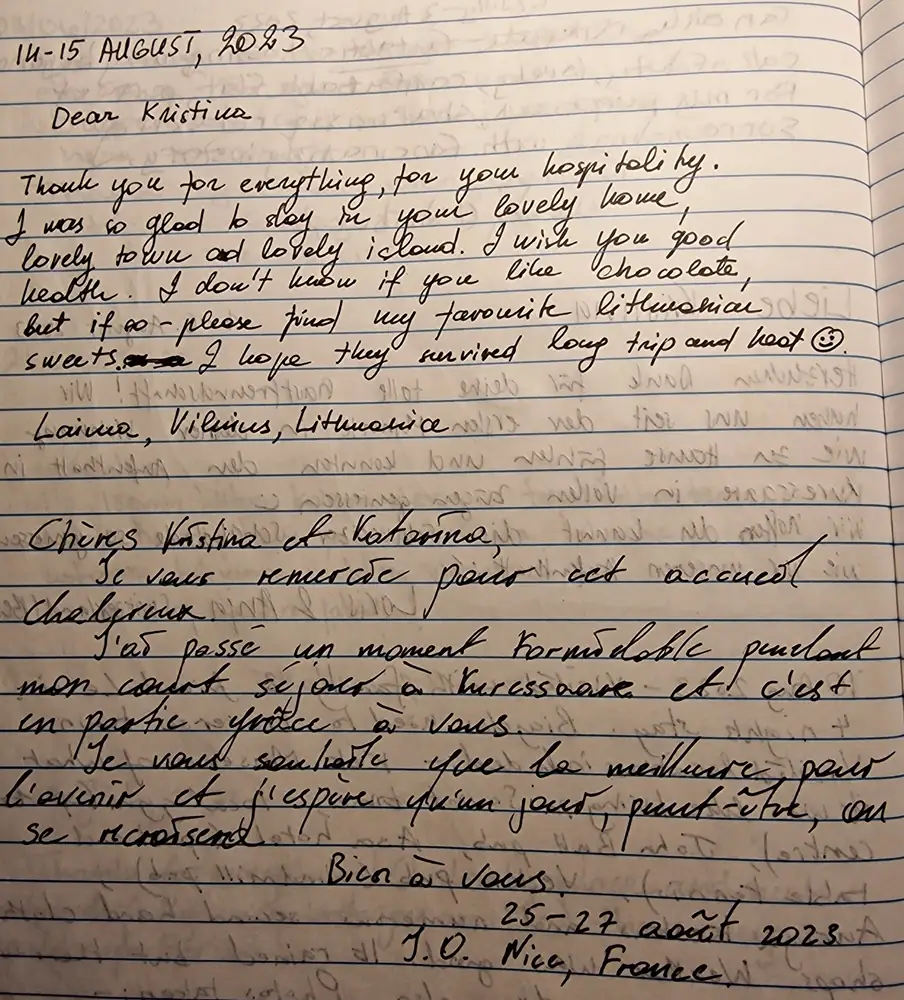 14-15 AUGUST, 2023
Dear Kristina
Thank you for everything, for your hospitality.
I was so glad to stay in your lovely home,
lovely town ad lovely island. I wish you good
health. I don't know if you like chocolate,
but if so - please find my favourite lithuanian
sweets. I hope they survived long trip and heat ☺.
Laima, Vilnius, Lithuania
Chères Kristina et Katarina,
Je vous remercie pour cet accueil
chaleureux.
J'ai passé un moment formidable pendant
mon court séjour à Kuressaare et c'est
en partie grâce à vous.
Je vous souhaite que la meilleure pour
l'avenir et j'espère qu'un jour, peut-être, on
se
Bien à vous.
25-27 août 2023
J.O. Nice, France